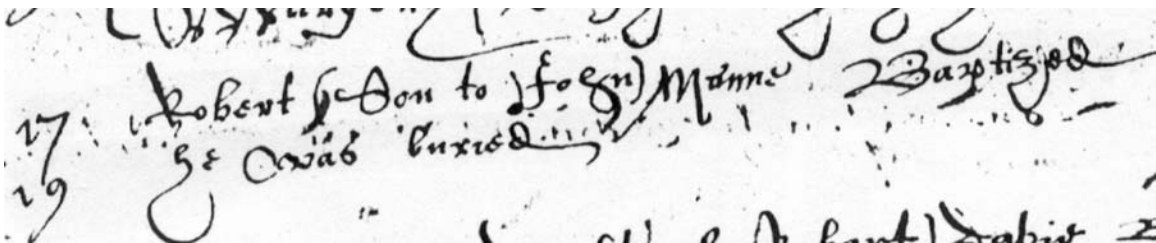 17 Robert ye Son to John Manne Baptized
19 he was buried
Robert